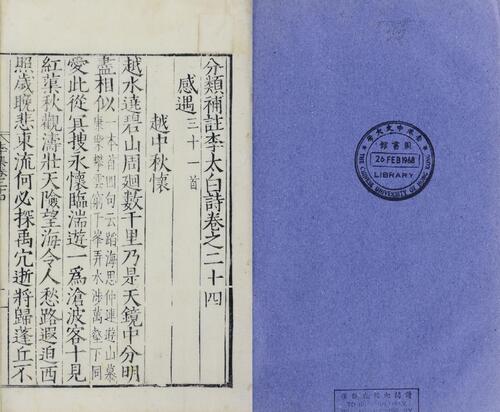 分類補註李太白詩卷之二十四
感遇三十一首
越中秋懷
越水遶碧山周迴數千里乃是天鏡中分明
盡相似
本首四句云蹈海思仲連遊山慕
康樂攀雲窮千峯弄水涉萬壑下同
愛此從冥搜永懷臨湍遊一爲滄波客十見
紅蕖秋觀濤壯天險望海令人愁路遐迫西
照歲晚悲東流何必探禹穴逝將歸蓬丘不
香港中文大學
圖書館
26 FEB 1968
LIBRARY
THE CHINESE UNIVERSITY OF HONG KONG